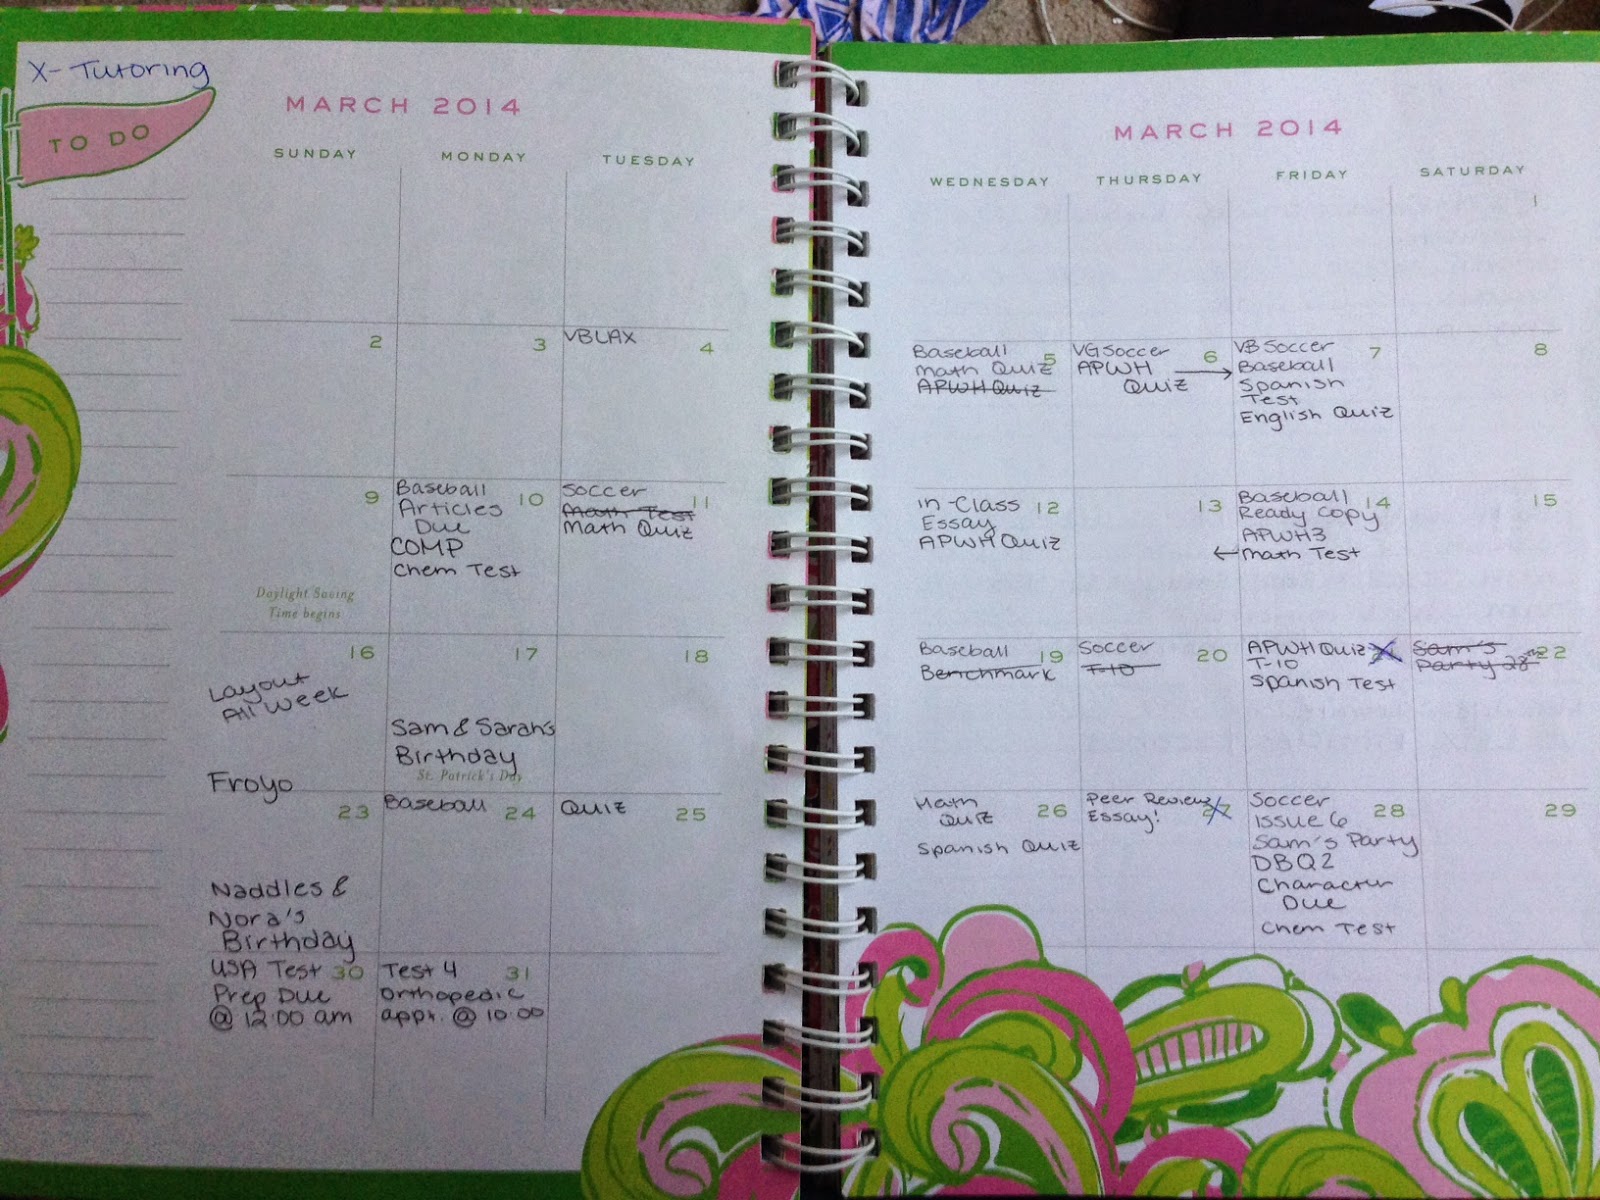 X- Tutoring
TO DO
MARCH 2014
SUNDAY
MONDAY
TUESDAY
2
3
VBLAX
4
9
Daylight Saving
Time begins
Baseball
10
Articles
Due
COMP
Chem Test
Soccer
11
Math Test
Math Quiz
16
Layout
All Week
Froyo
17
Sam & Sarah's
Birthday
St. Patrick's Day
18
23
Naddles &
Nora's
Birthday
Baseball
24
Quiz
25
USA Test
30
Prep Due
@ 12:00 am
Test 4
31
Orthopedic
appt. @ 10:00
MARCH 2014
WEDNESDAY
THURSDAY
FRIDAY
SATURDAY
1
Baseball
5
Math Quiz
APWH Quiz
VG Soccer
6
APWH
Quiz
VB Soccer
7
Baseball
Spanish
Test
English Quiz
8
In-Class
12
Essay
APWH Quiz
13
Baseball
14
Ready Copy
APWH3
Math Test
15
Baseball
19
Benchmark
Soccer
20
T-10
APWH Quiz
21
T-10
Spanish Test
Sam's
22
Party 28th
Math
26
Quiz
Spanish Quiz
Peer Review
27
Essay!
Soccer
28
Issue 6
Sam's Party
DBQ2
Character
Due
Chem Test
29